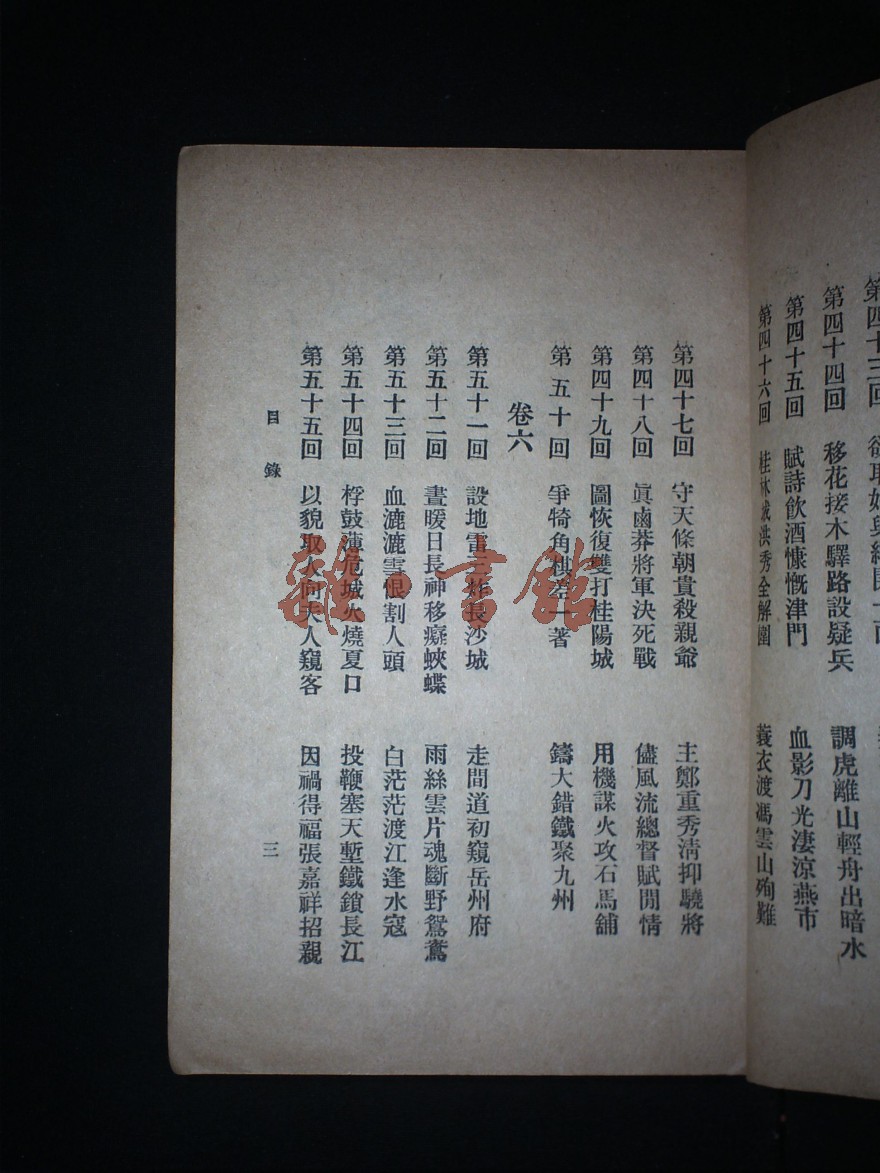 第四十三回
第四十四回 移花接木驛路設疑兵 調虎離山輕舟出暗水
第四十五回 賦詩飲酒慷慨津門 血影刀光淒涼燕市
第四十六回 桂林城洪秀全解圍 蓑衣渡馮雲山殉難
第四十七回 守天條朝貴殺親爺 主鄭重秀淸抑驍將
第四十八回 眞鹵莽將軍決死戰 儘風流總督賦閒情
第四十九回 圖恢復雙打桂陽城 用機謀火攻石馬舖
第五十回 爭犄角棋差一著 鑄大錯鐵聚九州
卷六
第五十一回 設地雷三炸長沙城 走間道初窺岳州府
第五十二回 晝暖日長神移癡蛺蝶 雨絲雲片魂斷野鴛鴦
第五十三回 血漉漉雪恨割人頭 白茫茫渡江逢水寇
第五十四回 桴鼓薄危城火燒夏口 投鞭塞天塹鐵鎖長江
第五十五回 以貌取人向夫人窺客 因禍得福張嘉祥招親
目錄
三
雜·書館